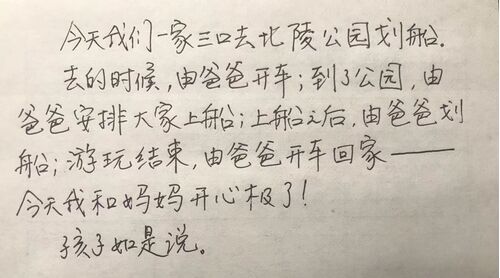 今天我们一家三口去北陵公园划船.
去的时候,由爸爸开车;到了公园,由
爸爸安排大家上船;上船之后,由爸爸划
船;游玩结束,由爸爸开车回家——
今天我和妈妈开心极了!
孩子如是说。